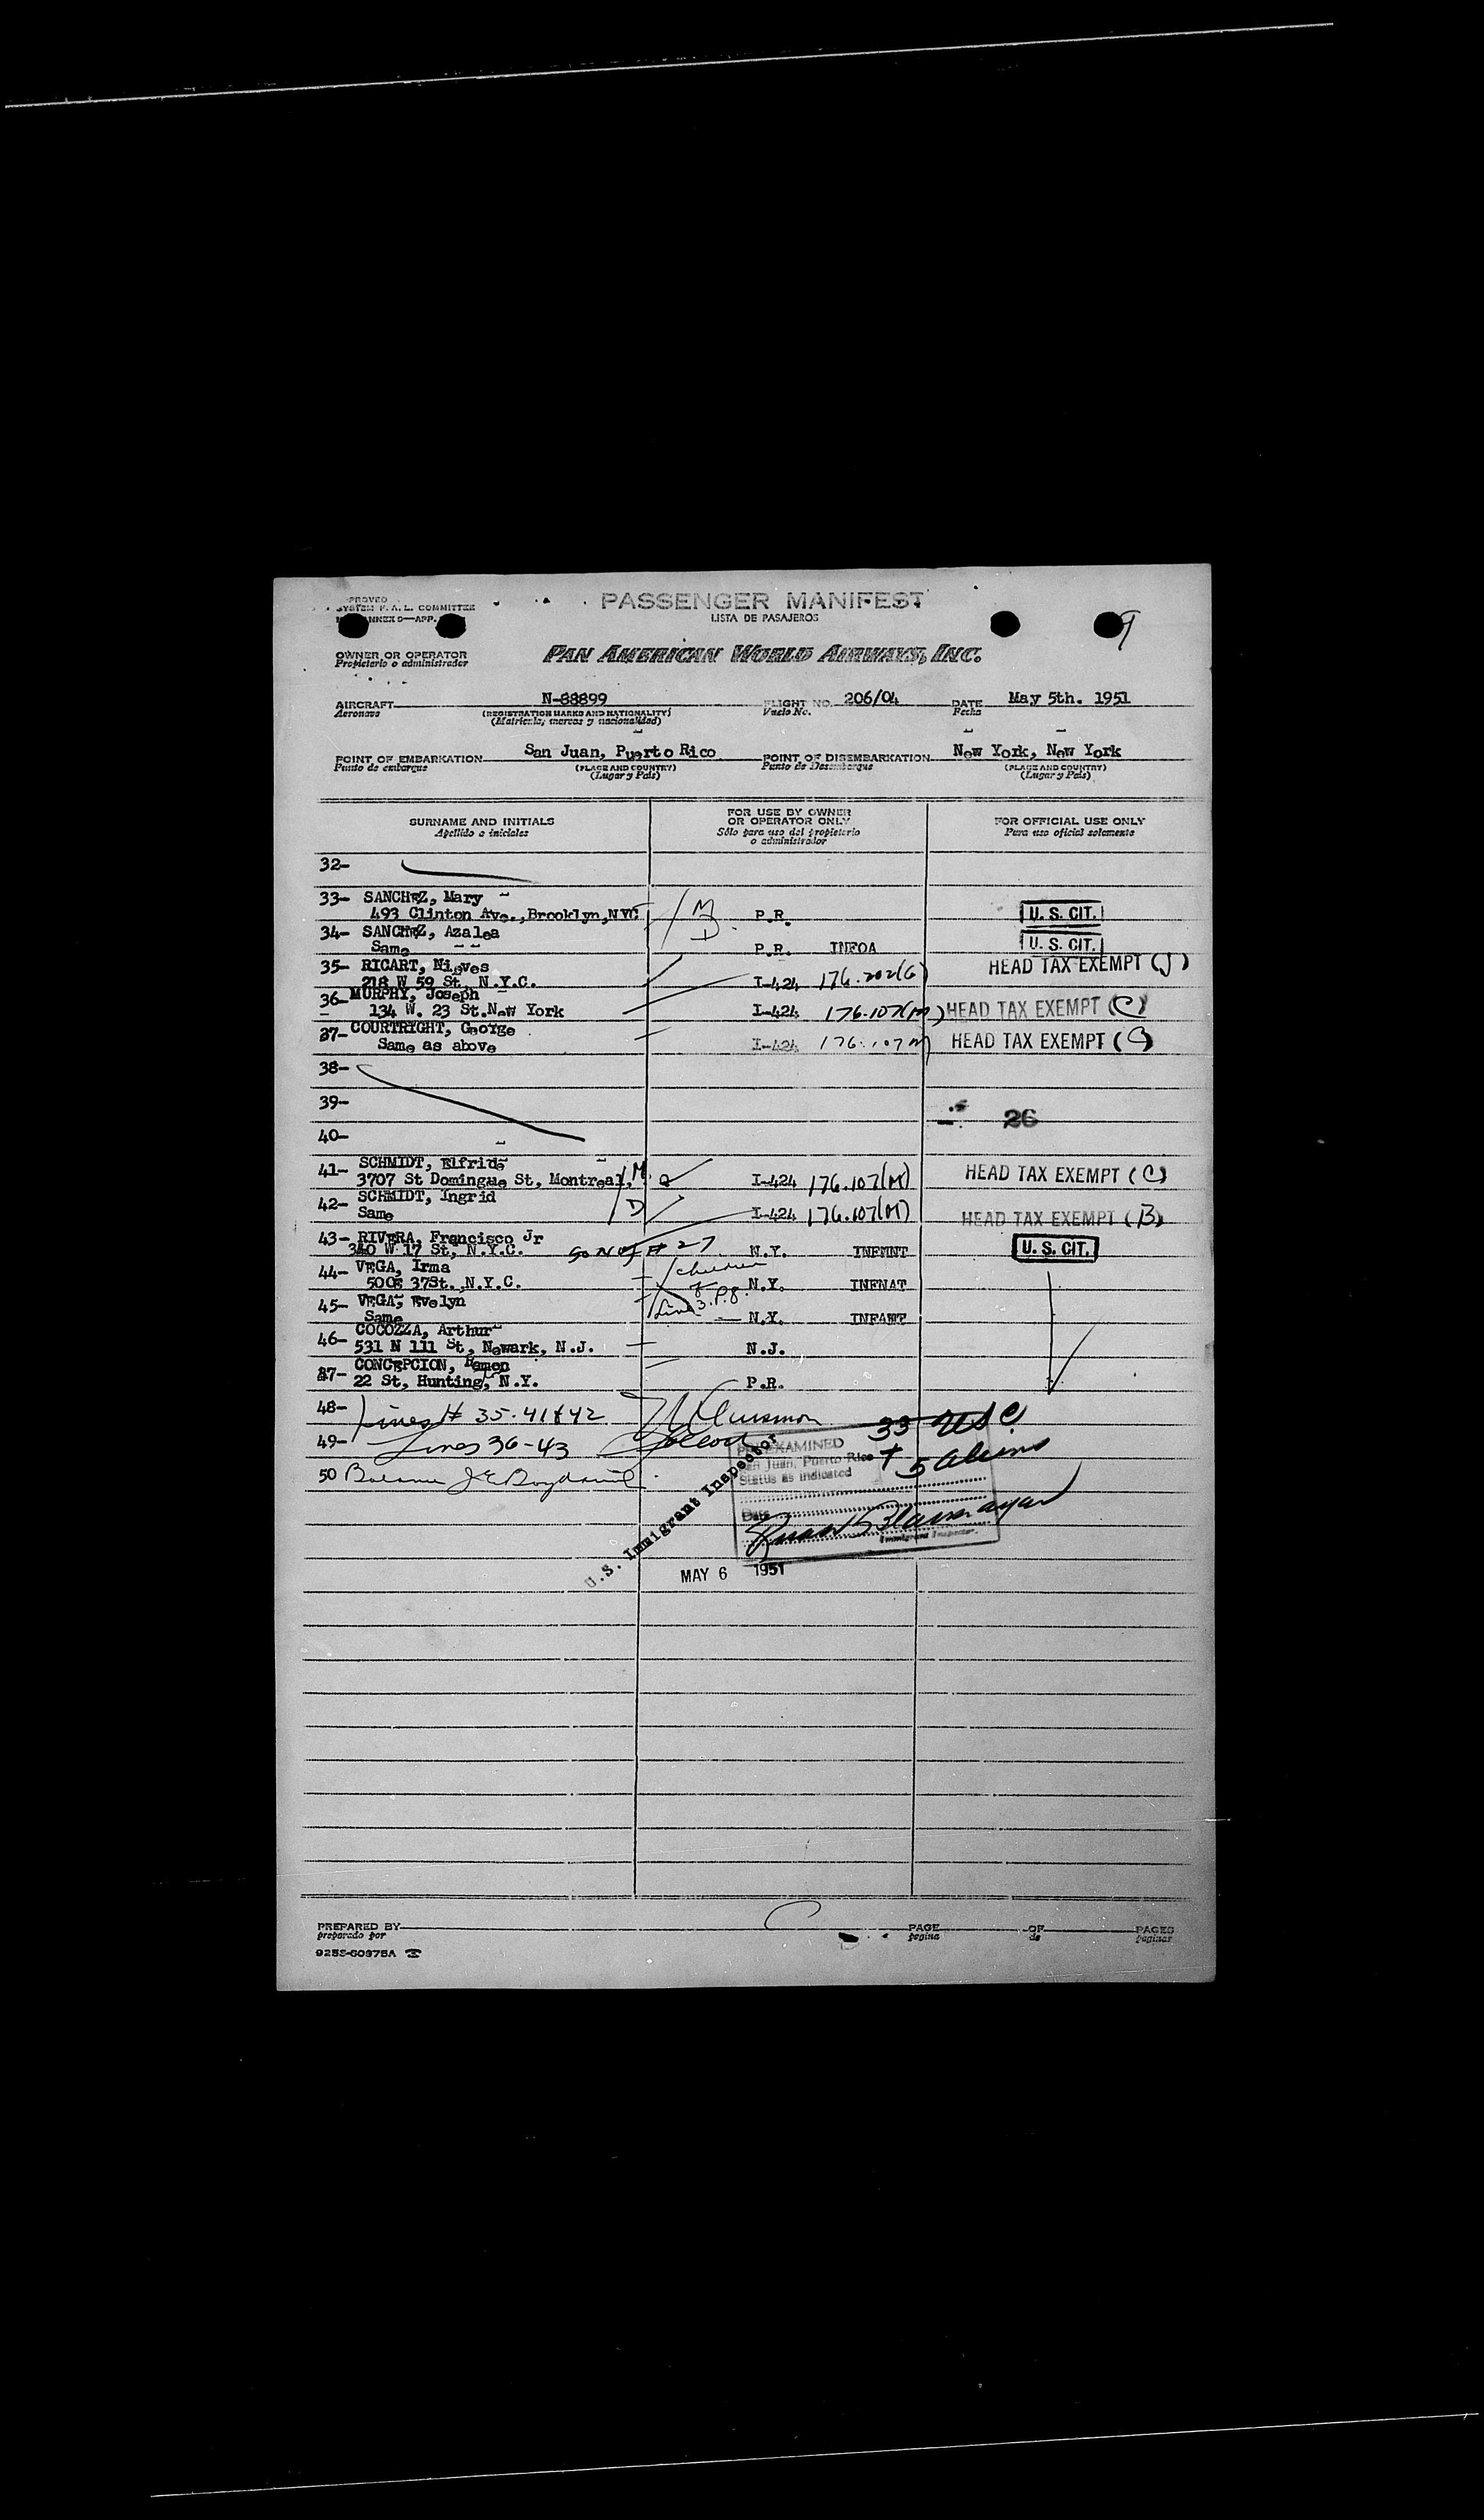 PROVED
SYSTEM F. A. L. COMMITTEE
ANNEX D—APP.
PASSENGER MANIFEST
LISTA DE PASAJEROS
9
OWNER OR OPERATOR
Propietario o administrador
PAN AMERICAN WORLD AIRWAYS, INC.
AIRCRAFT N-88899 FLIGHT NO. 206/04 DATE May 5th. 1951
Aeronave (REGISTRATION MARKS AND NATIONALITY) Vuelo No. Fecha
(Matrícula, marcas y nacionalidad)
POINT OF EMBARKATION San Juan, Puerto Rico POINT OF DISEMBARKATION New York, New York
Punto de embarque (PLACE AND COUNTRY) Punto de Desembarque (PLACE AND COUNTRY)
(Lugar y País) (Lugar y País)
SURNAME AND INITIALS FOR USE BY OWNER OR OPERATOR ONLY FOR OFFICIAL USE ONLY
Apellido o iniciales Sólo para uso del propietario o administrador Para uso oficial solamente
32-
33- SANCHEZ, Mary
493 Clinton Ave., Brooklyn, NYC M P.R. U. S. CIT.
34- SANCHEZ, Azalea D.
Same P.R. INFOA U. S. CIT.
35- RICART, Nieves HEAD TAX EXEMPT (J)
218 W 59 St, N.Y.C. I-424 176.202(G)
36- MURPHY, Joseph
134 W. 23 St. New York I-424 176.107(M) HEAD TAX EXEMPT (C)
37- COURTRIGHT, George
Same as above I-424 176.107M HEAD TAX EXEMPT (C)
38-
39-
26
40-
41- SCHMIDT, Elfride
3707 St Domingue St, Montreal, M. I-424 176.107(M) HEAD TAX EXEMPT (C)
42- SCHMIDT, Ingrid
Same D I-424 176.107(M) HEAD TAX EXEMPT (B)
43- RIVERA, Francisco Jr
340 W 17 St, N.Y.C. Son of # 27 N.Y. INFMNT U. S. CIT.
44- VEGA, Irma children
500E 37St. N.Y.C. of N.Y. INFNAT
45- VEGA, Evelyn Line 3. P.8.
Same N.Y. INFANT
46- COCOZZA, Arthur
531 N 111 St, Newark, N.J. N.J.
47- CONCEPCION, Ramon
22 St, Hunting, N.Y. P.R.
48- Lines # 35-41&42 33 USC
49- Lines 36-43 + 5 aliens
50
PRE-EXAMINED
San Juan, Puerto Rico
Status as indicated
Date
Immigrant Inspector.
U.S. Immigrant Inspector
MAY 6 1951
PREPARED BY PAGE OF PAGES
preparado por pagina de paginas